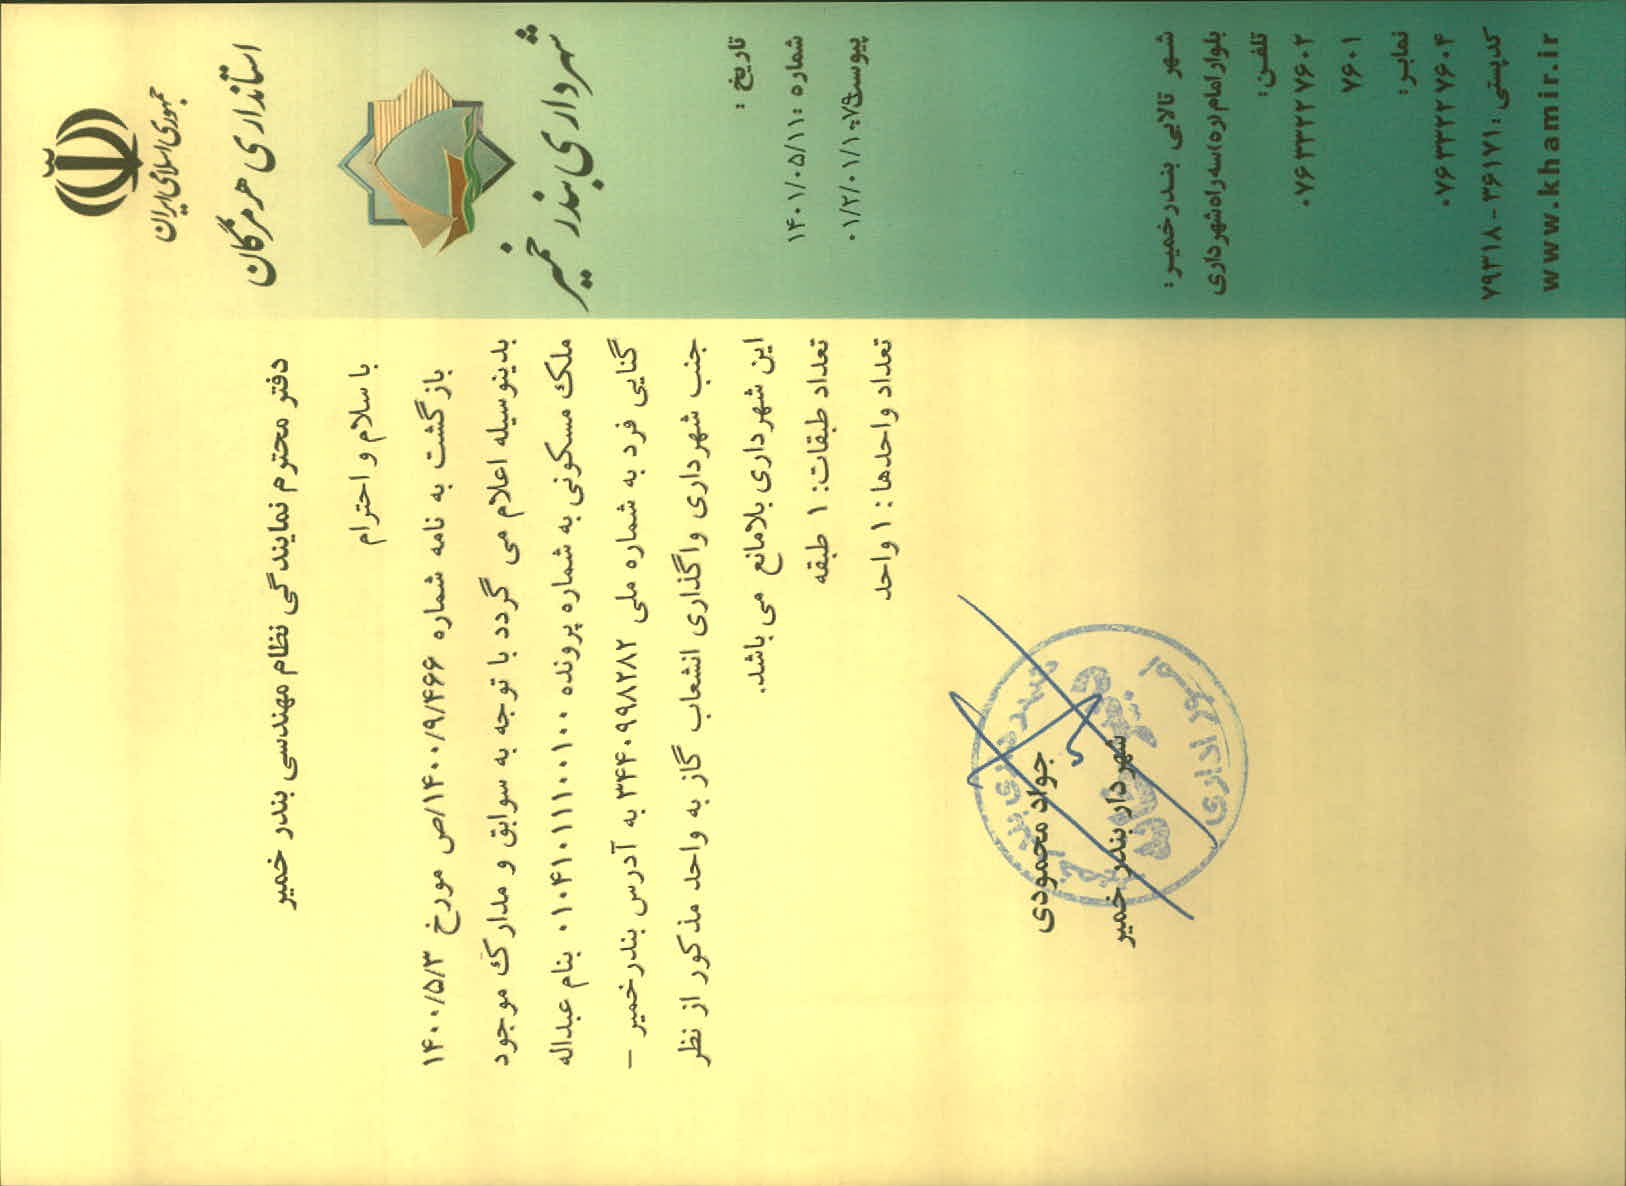 جمهوری اسلامی ایران
استانداری هرمزگان
شهرداری بندر خمیر
تاریخ :
شماره : ۱۴۰۱/۰۵/۱۱
پیوست:
دفتر محترم نمایندگی نظام مهندسی بندر خمیر
با سلام و احترام
بازگشت به نامه شماره ۱۴۰۰/۹/۴۶۶/ص مورخ ۱۴۰۰/۵/۳
بدینوسیله اعلام می گردد با توجه به سوابق و مدارک موجود
ملک مسکونی به شماره پرونده ۰۱۰۴۱۰۱۱۱۰۰۱۰۰ بنام عبداله
گنایی فرد به شماره ملی ۳۴۴۰۹۹۸۲۸۲ به آدرس بندرخمیر –
جنب شهرداری واگذاری انشعاب گاز به واحد مذکور از نظر
این شهرداری بلامانع می باشد.
تعداد طبقات: ۱ طبقه
تعداد واحدها : ۱ واحد
جواد محمودی
شهردار بندر خمیر
امور اداری
شهر تالابی بندرخمیر:
بلوار امام(ره)سه راه شهرداری
تلفن:
۰۷۶۳۳۲۲۷۶۰۲
۷۶۰۱
نمابر:
۰۷۶۳۳۲۲۷۶۰۴
کدپستی: ۳۶۱۷۱ - ۷۹۳۱۸
www.khamir.ir